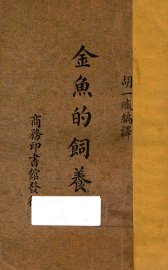 胡一臧編譯
金魚的飼養
商務印書館發